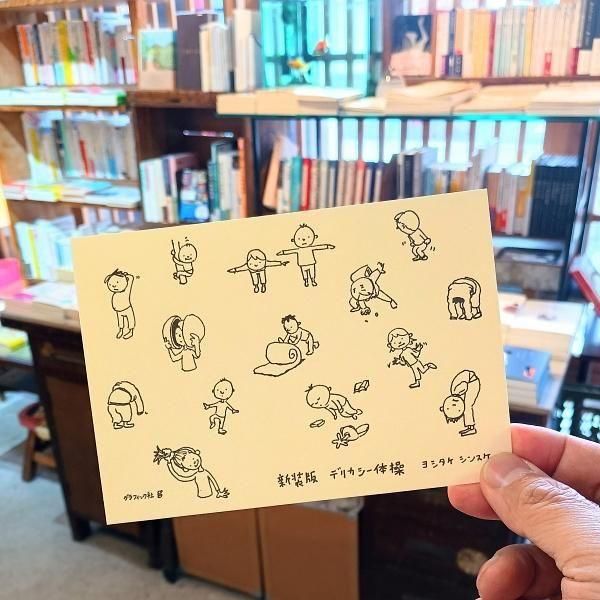 新装版 デリカシー体操 ヨシタケ シンスケ
グラフィック社